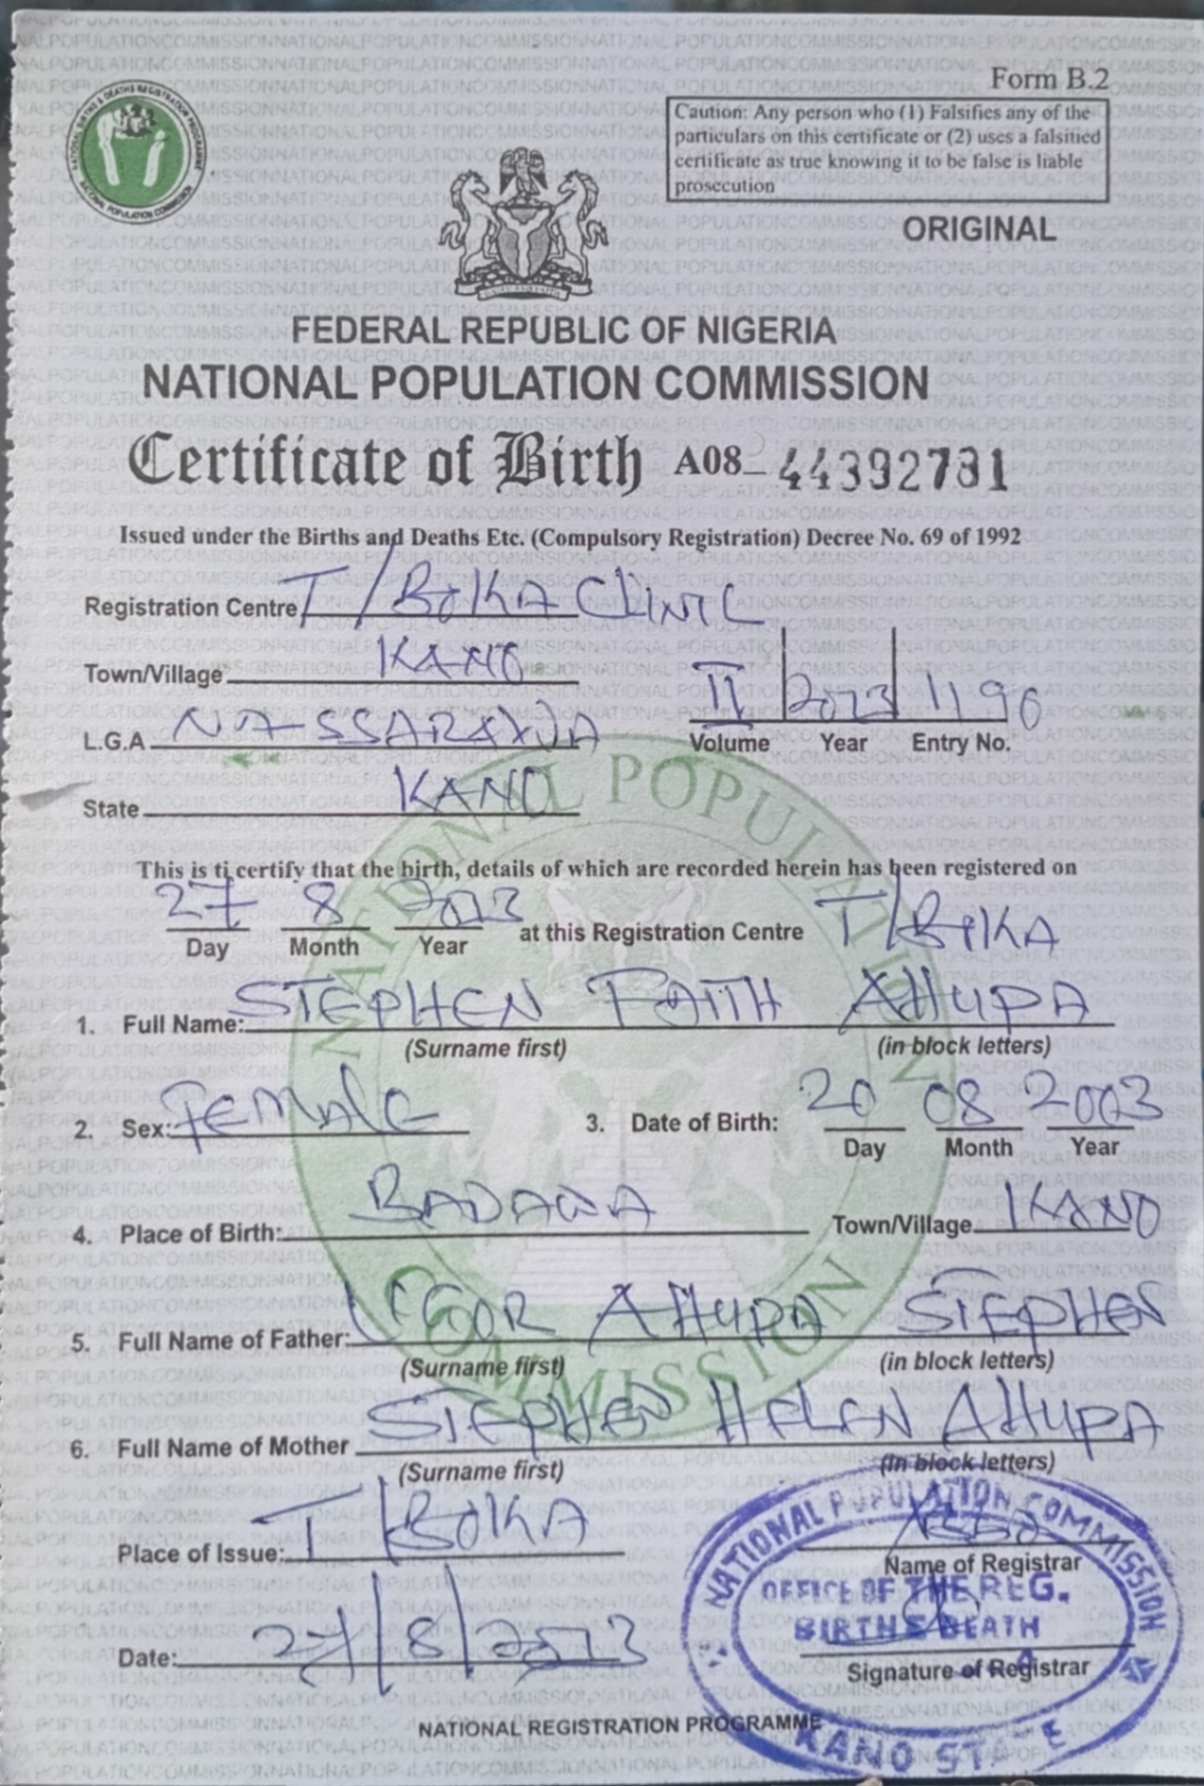 Form B.2
Caution: Any person who (1) Falsifies any of the
particulars on this certificate or (2) uses a falsitied
certificate as true knowing it to be false is liable
prosecution
NATIONAL BIRTHS & DEATHS REGISTRATION PROGRAMME
NATIONAL POPULATION COMMISSION
ORIGINAL
FEDERAL REPUBLIC OF NIGERIA
NATIONAL POPULATION COMMISSION
Certificate of Birth A08 44392731
Issued under the Births and Deaths Etc. (Compulsory Registration) Decree No. 69 of 1992
Registration Centre T/BOKA CLINIC
Town/Village KANO
L.G.A NASSARAWA
II 2023 1190
Volume Year Entry No.
State KANO
This is ti certify that the birth, details of which are recorded herein has been registered on
27 8
Day Month Year at this Registration Centre T/BOKA
1. Full Name: STEPHEN FAITH AHUPA
(Surname first) (in block letters)
2. Sex: FEMALE 3. Date of Birth: 20 08 2003
Day Month Year
4. Place of Birth: BADAWA Town/Village KANO
5. Full Name of Father: AHUPA STEPHEN
(Surname first) (in block letters)
6. Full Name of Mother STEPHEN HELEN AHUPA
(Surname first) (in block letters)
Place of Issue: T/BOKA
Name of Registrar
Date: 27/8/
Signature of Registrar
NATIONAL POPULATION COMMISSION
OFFICE OF THE REG.
BIRTHS DEATH
KANO STATE
NATIONAL REGISTRATION PROGRAMME
NATIONAL POPULATION COMMISSION